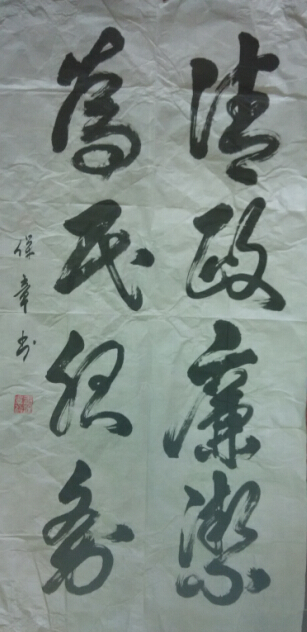 清政廉潔
為民服务
保章书